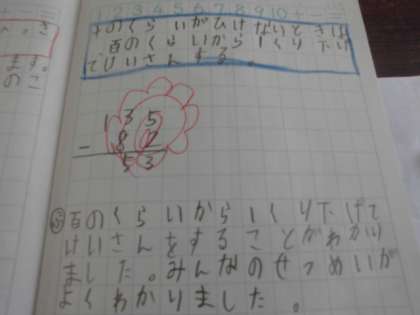 1 2 3 4 5 6 7 8 9 10
十のくらいがひけないときは
、百のくらいから1くり下げ
てけいさんする。
ます。
のこ
135
- 82
53
百のくらいから1くり下げて
けいさんをすることがわかり
ました。みんなのせつめいが
よくわかりました。